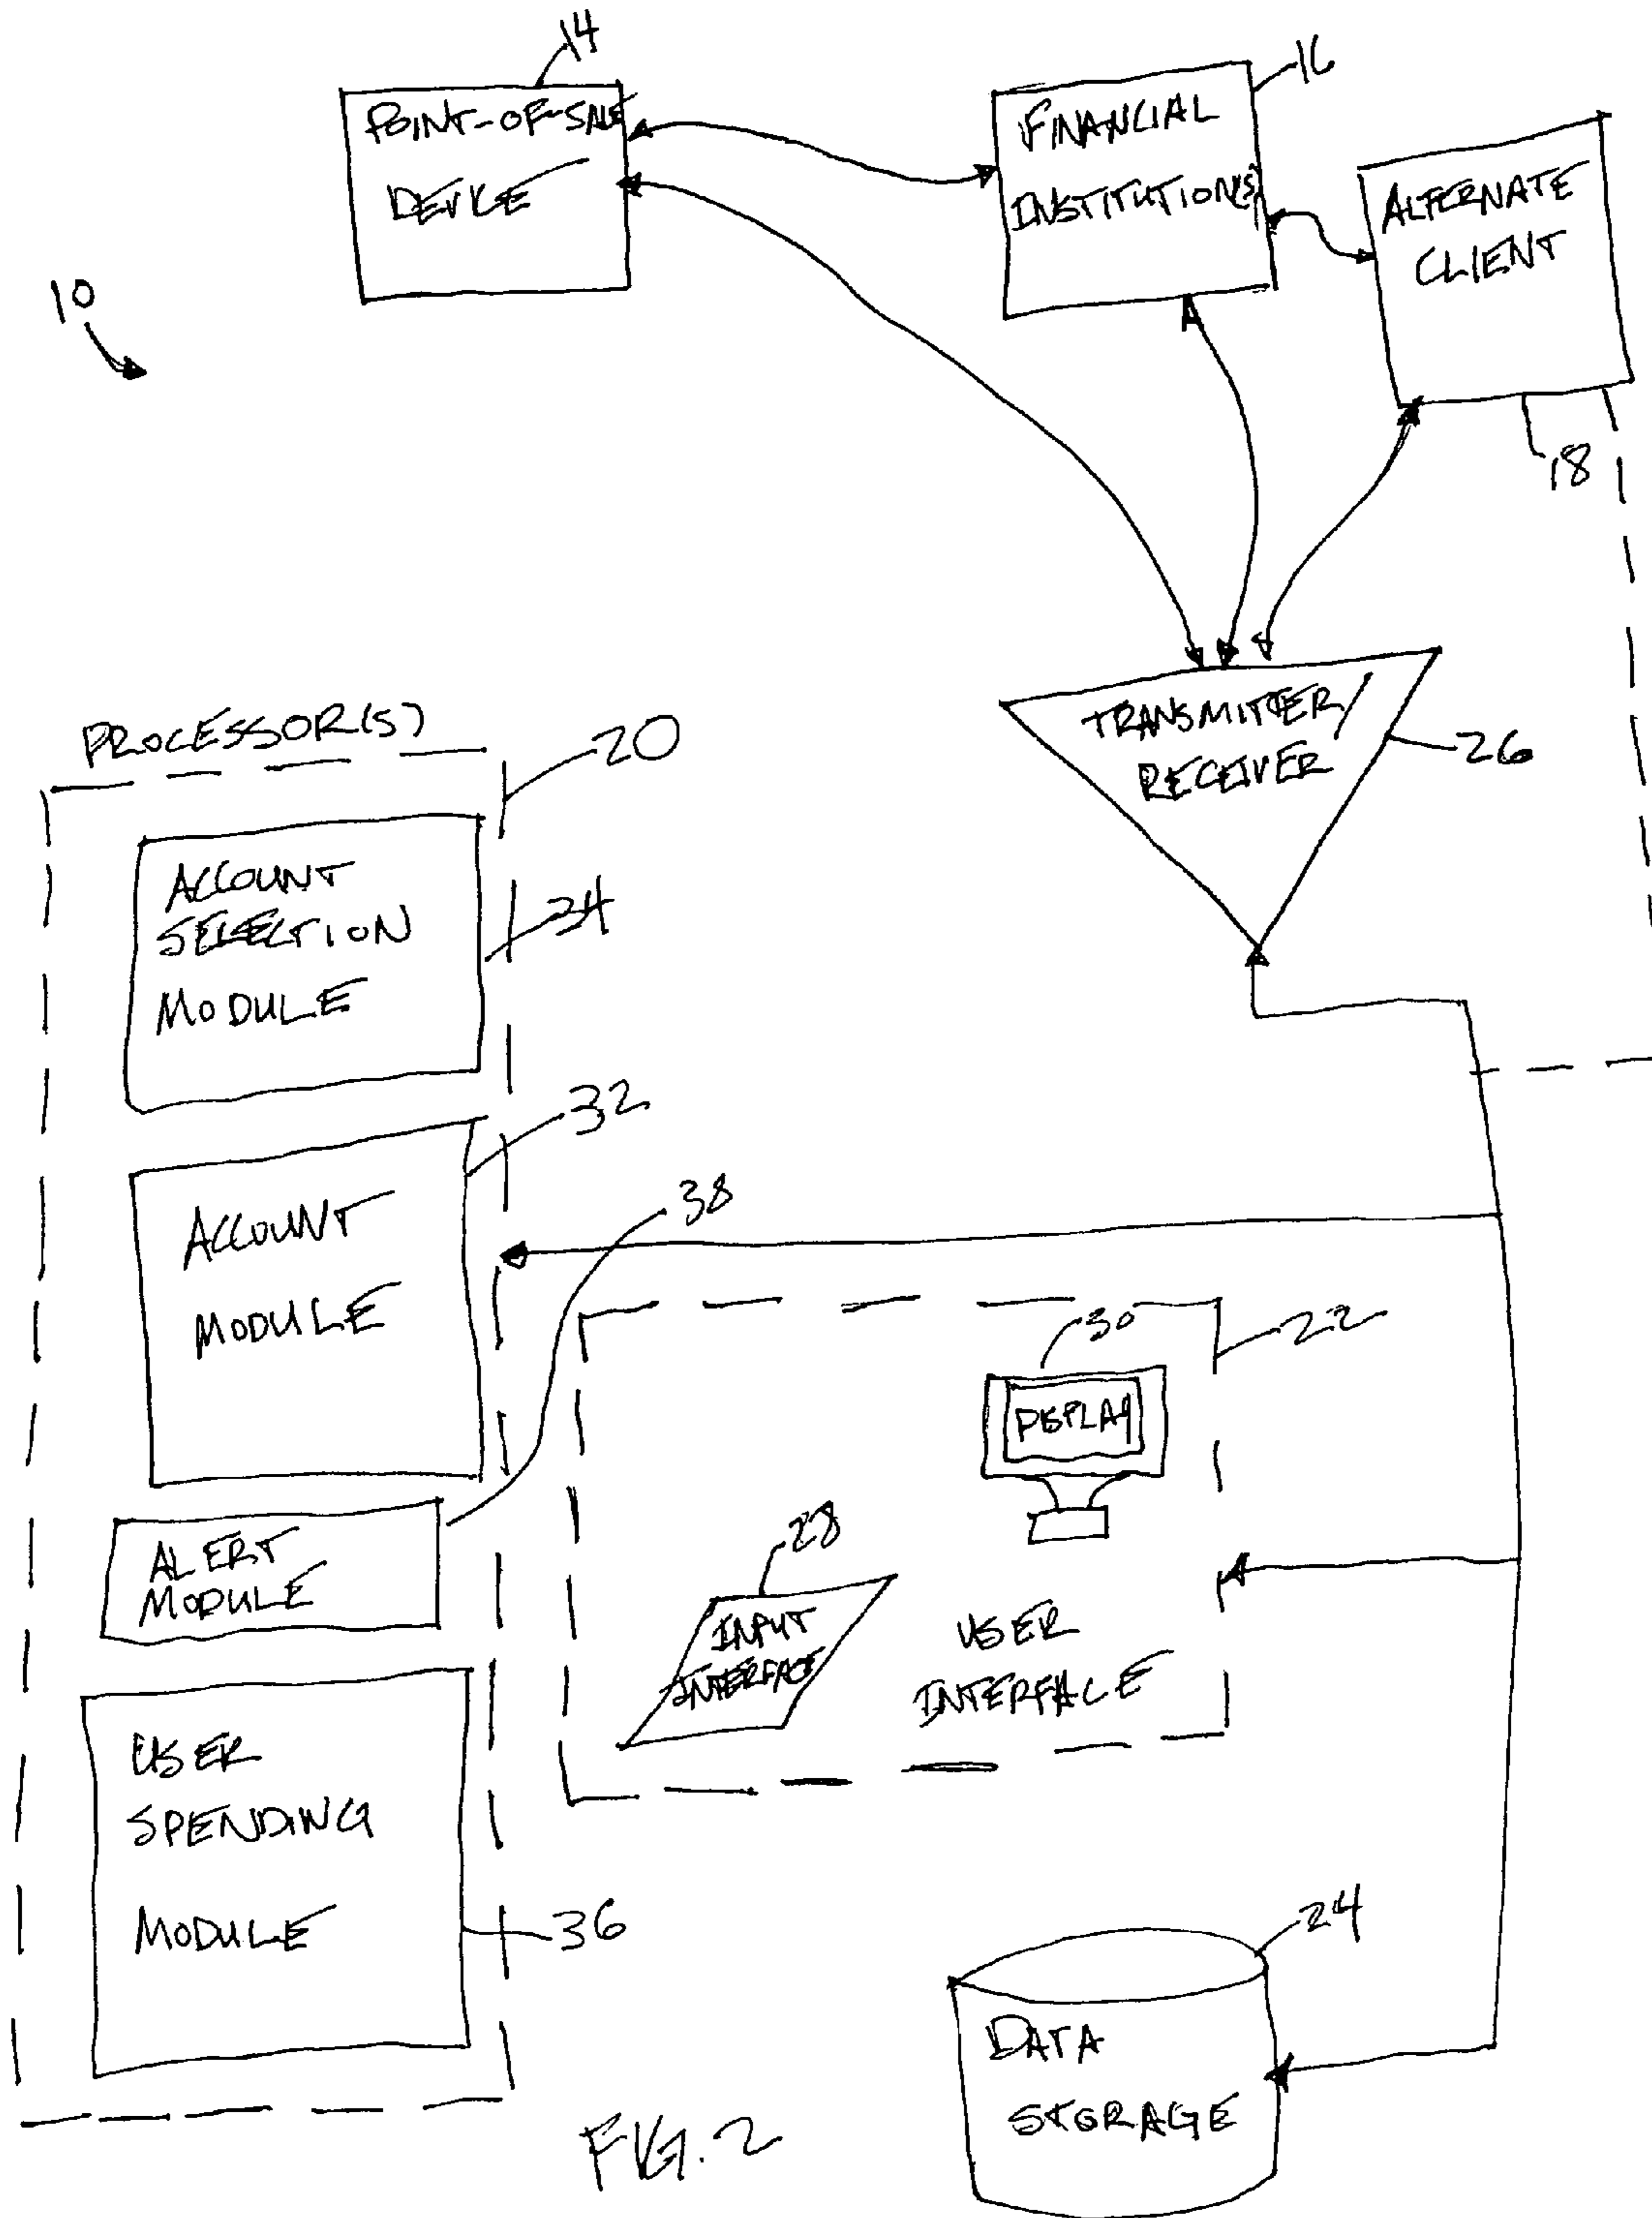 14
POINT-OF-SALE
DEVICE
16
FINANCIAL
INSTITUTION(S)
ALTERNATE
CLIENT
18
10
TRANSMITTER/
RECEIVER
26
PROCESSOR(S)
20
ACCOUNT
SELECTION
MODULE
34
32
ACCOUNT
MODULE
38
30
22
DISPLAY
ALERT
MODULE
28
INPUT
INTERFACE
USER
INTERFACE
USER
SPENDING
MODULE
36
24
DATA
STORAGE
FIG. 2